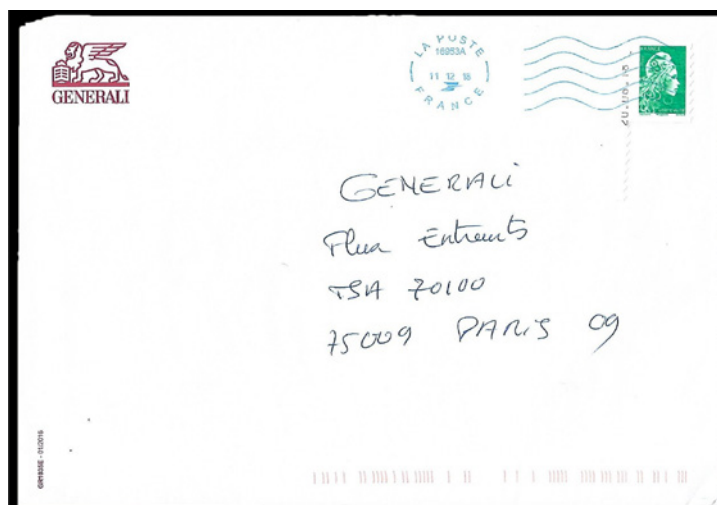 GENERALI
LA POSTE
16953A
11 12 18
FRANCE
FRANCE
GENERALI
Flux Entrants
TSA 70100
75009 PARIS 09